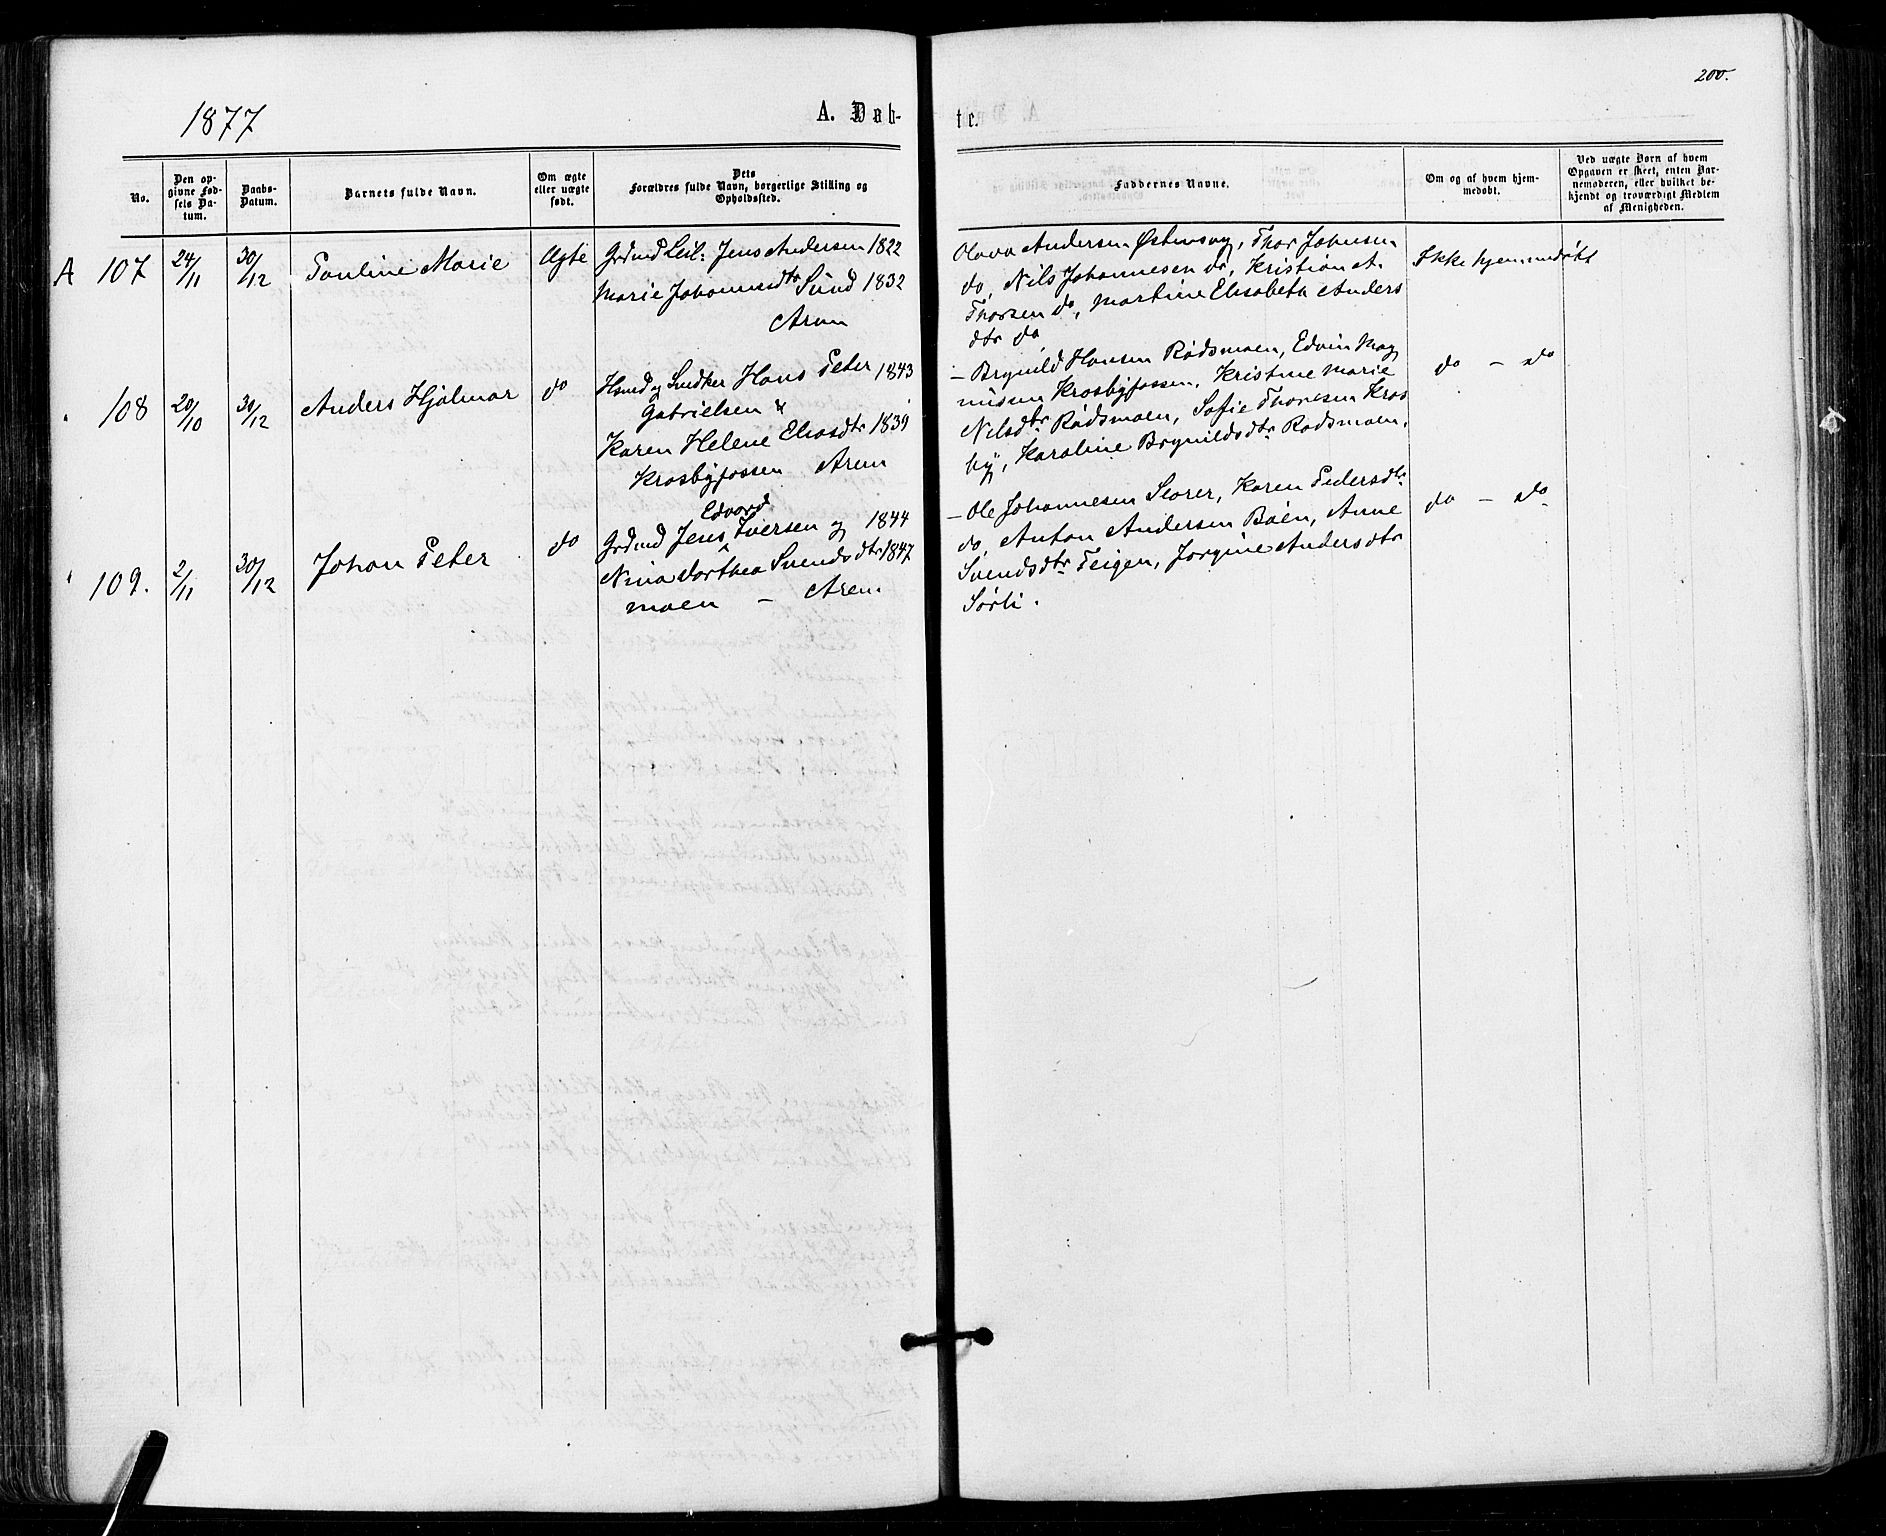 200.
1877
A. Døb-
te.
No.
Den opgivne Fødsels Datum.
Daabs-Datum.
Barnets fulde Navn.
Om ægte eller uægte født.
Dets Forældres fulde Navn, borgerlige Stilling og Opholdssted.
Faddernes Navne.
Om og af hvem hjemmedøbt.
Ved uægte Børn af hvem Opgaven er skeet, enten Barnemoderen, eller hvilket bekjendt og troværdigt Medlem af Menigheden.
A 107 24/11 30/12 Pauline Marie Ægte
Grdmd Leil: Jens Andersen 1822
Marie Johannesdtr Sund 1832
Arem
Olava Andersen Østensvig, Thor Johnsen
do, Nils Johannesen do, Kristian A.
Thorsen do, Martine Elisabeth Anders
dtr do
Ikke hjemmedøbt
108 20/10 30/12 Anders Hjalmar do
Hsmd og Snedker Hans Peter 1843
Gabrielsen &
Karen Helene Eliasdtr 1839
Krosbyfossen Arem
– Brynild Hansen Rødsmoen, Edvin Mag
nusen Krosbyfossen, Kristine Marie
Nilsdtr Rødsmoen, Sofie Thoresen Kros
by, Karoline Brynildsdtr Rødsmoen.
do – do
109. 2/11 30/12 Johan Peter do
Edvard
Grdmd Jens Iversen og 1844
Nina Dorthea Svendsdtr 1847
moen – Arem.
– Ole Johannesen Slorer, Karen Pedersdtr
do, Anton Andersen Båen, Anne
Svendsdtr Teigen, Jorgine Andersdtr
Sørli.
do – do